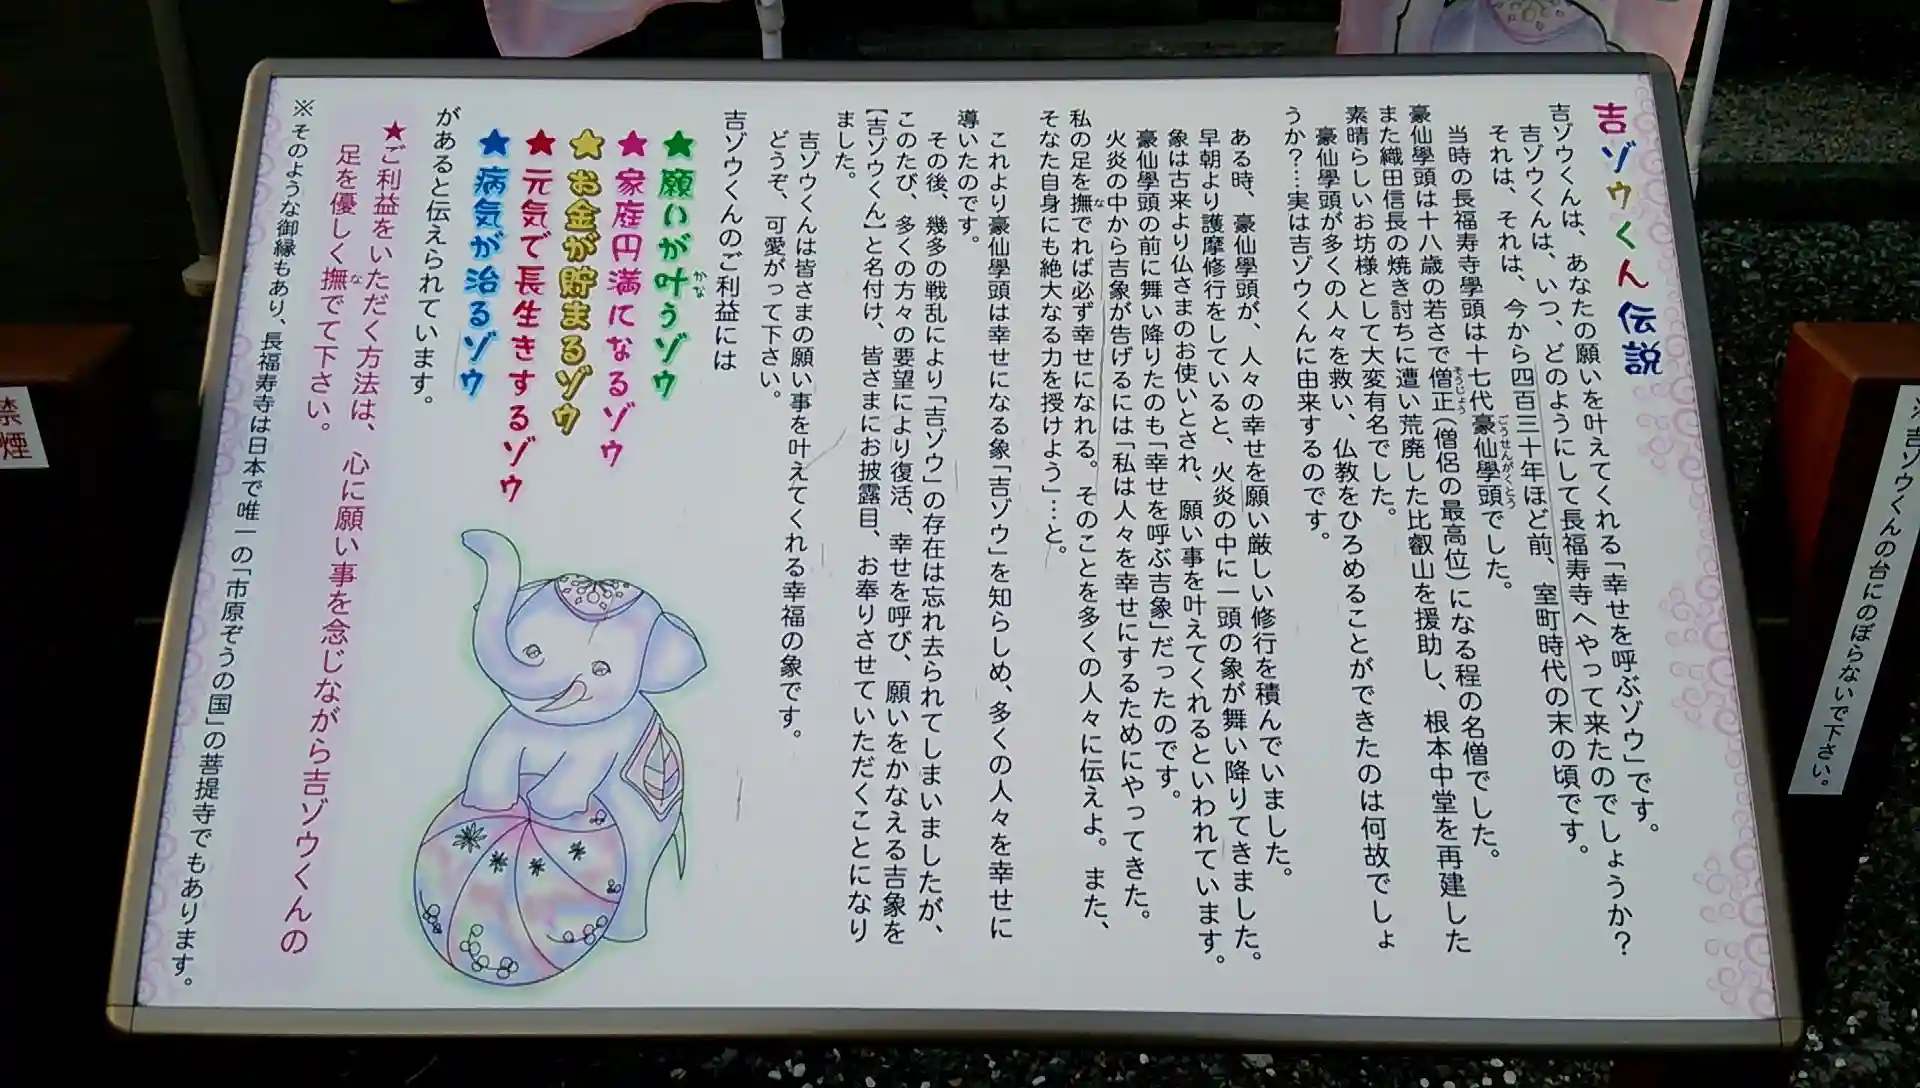 吉ゾウくん伝説
吉ゾウくんは、あなたの願いを叶えてくれる「幸せを呼ぶゾウ」です。
吉ゾウくんは、いつ、どのようにして長福寿寺へやって来たのでしょうか？
それは、それは、今から四百三十年ほど前、室町時代の末の頃です。
当時の長福寿寺學頭は十七代豪仙學頭でした。
ごうせんがくとう
豪仙學頭は十八歳の若さで僧正（僧侶の最高位）になる程の名僧でした。
そうじょう
また織田信長の焼き討ちに遭い荒廃した比叡山を援助し、根本中堂を再建した
素晴らしいお坊様として大変有名でした。
豪仙學頭が多くの人々を救い、仏教をひろめることができたのは何故でしょ
うか？…実は吉ゾウくんに由来するのです。
ある時、豪仙學頭が、人々の幸せを願い厳しい修行を積んでいました。
早朝より護摩修行をしていると、火炎の中に一頭の象が舞い降りてきました。
象は古来より仏さまのお使いとされ、願い事を叶えてくれるといわれています。
豪仙學頭の前に舞い降りたのも「幸せを呼ぶ吉象」だったのです。
火炎の中から吉象が告げるには「私は人々を幸せにするためにやってきた。
私の足を撫でれば必ず幸せになれる。そのことを多くの人々に伝えよ。また、
な
そなた自身にも絶大なる力を授けよう」…と。
これより豪仙學頭は幸せになる象「吉ゾウ」を知らしめ、多くの人々を幸せに
導いたのです。
その後、幾多の戦乱により「吉ゾウ」の存在は忘れ去られてしまいましたが、
このたび、多くの方々の要望により復活、幸せを呼び、願いをかなえる吉象を
【吉ゾウくん】と名付け、皆さまにお披露目、お奉りさせていただくことになり
ました。
吉ゾウくんは皆さまの願い事を叶えてくれる幸福の象です。
どうぞ、可愛がって下さい。
吉ゾウくんのご利益には
★願いが叶うゾウ
かな
★家庭円満になるゾウ
★お金が貯まるゾウ
★元気で長生きするゾウ
★病気が治るゾウ
があると伝えられています。
★ご利益をいただく方法は、心に願い事を念じながら吉ゾウくんの
足を優しく撫でて下さい。
な
※そのような御縁もあり、長福寿寺は日本で唯一の「市原ぞうの国」の菩提寺でもあります。
※吉ゾウくんの台にのぼらないで下さい。
禁煙